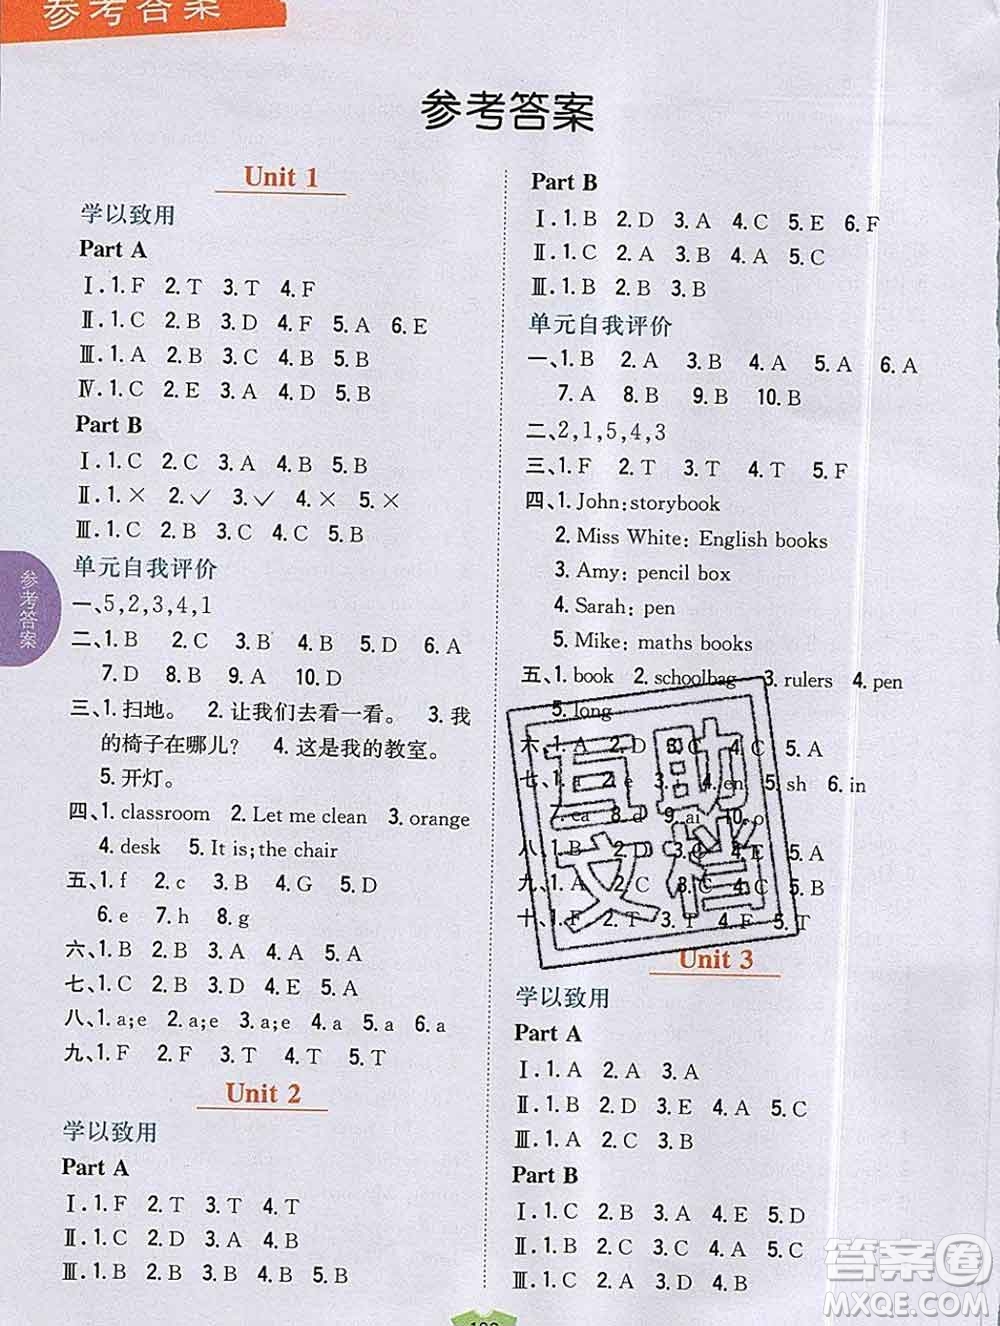 参考答案
参考答案
Unit 1
学以致用
Part A
Ⅰ.1.F 2.T 3.T 4.F
Ⅱ.1.C 2.B 3.D 4.F 5.A 6.E
Ⅲ.1.A 2.B 3.C 4.B 5.B
Ⅳ.1.C 2.E 3.A 4.D 5.B
Part B
Ⅰ.1.C 2.C 3.A 4.B 5.A
Ⅱ.1.× 2.✓ 3.✓ 4.× 5.×
Ⅲ.1.C 2.B 3.A 4.C 5.B
单元自我评价
一、5,2,3,4,1
二、1.B 2.C 3.B 4.B 5.A 6.C
7.D 8.B 9.A 10.D
三、1.扫地。 2.让我们去看一看。 3.我
的椅子在哪儿? 4.这是我的教室。
5.开灯。
四、1.classroom 2.Let me clean 3.orange
4.desk 5.It is;the chair
五、1.f 2.c 3.B 4.G 5.D
6.e 7.h 8.g
六、1.B 2.B 3.A 4.A 5.A
七、1.C 2.B 3.D 4.E 5.A
八、1.a;e 2.a;e 3.a;e 4.a 5.a 6.a
九、1.F 2.F 3.T 4.F 5.T
Unit 2
学以致用
Part A
Ⅰ.1.F 2.T 3.T 4.T
Ⅱ.1.C 2.D 3.A 4.B
Ⅲ.1.B 2.B 3.A 4.B 5.B
Part B
Ⅰ.1.B 2.D 3.A 4.C 5.E 6.F
Ⅱ.1.C 2.A 3.B 4.A 5.C
Ⅲ.1.B 2.B 3.B
单元自我评价
一、1.B 2.A 3.B 4.A 5.A 6.A
7.A 8.B 9.B 10.B
二、2,1,5,4,3
三、1.F 2.T 3.T 4.T 5.F
四、1.John:storybook
2.Miss White: English books
3.Amy: pencil box
4.Sarah: pen
5.Mike: maths books
五、1.book 2.schoolbag 3.rulers 4.pen
5.long
六、1.A 2.D 3.C 4.B 5.A
七、1.a 2.e 4.en 5.sh 6.in
7.ea 8.d 9.ai 10.o
八、1.B 4.E 5.A
九、1.A 3.C 4.C 5.B
十、1.F 2.T 3.T 4.F 5.T
Unit 3
学以致用
Part A
Ⅰ.1.A 2.A 3.A
Ⅱ.1.B 2.D 3.E 4.A 5.C
Ⅲ.1.A 2.C 3.B
Part B
Ⅰ.1.C 2.B 3.A 4.E 5.D
Ⅱ.1.B 2.C 3.A 4.B
Ⅲ.1.C 2.A 3.D 4.B
参考答案
互助
文档
答案圈
MXQE.COM